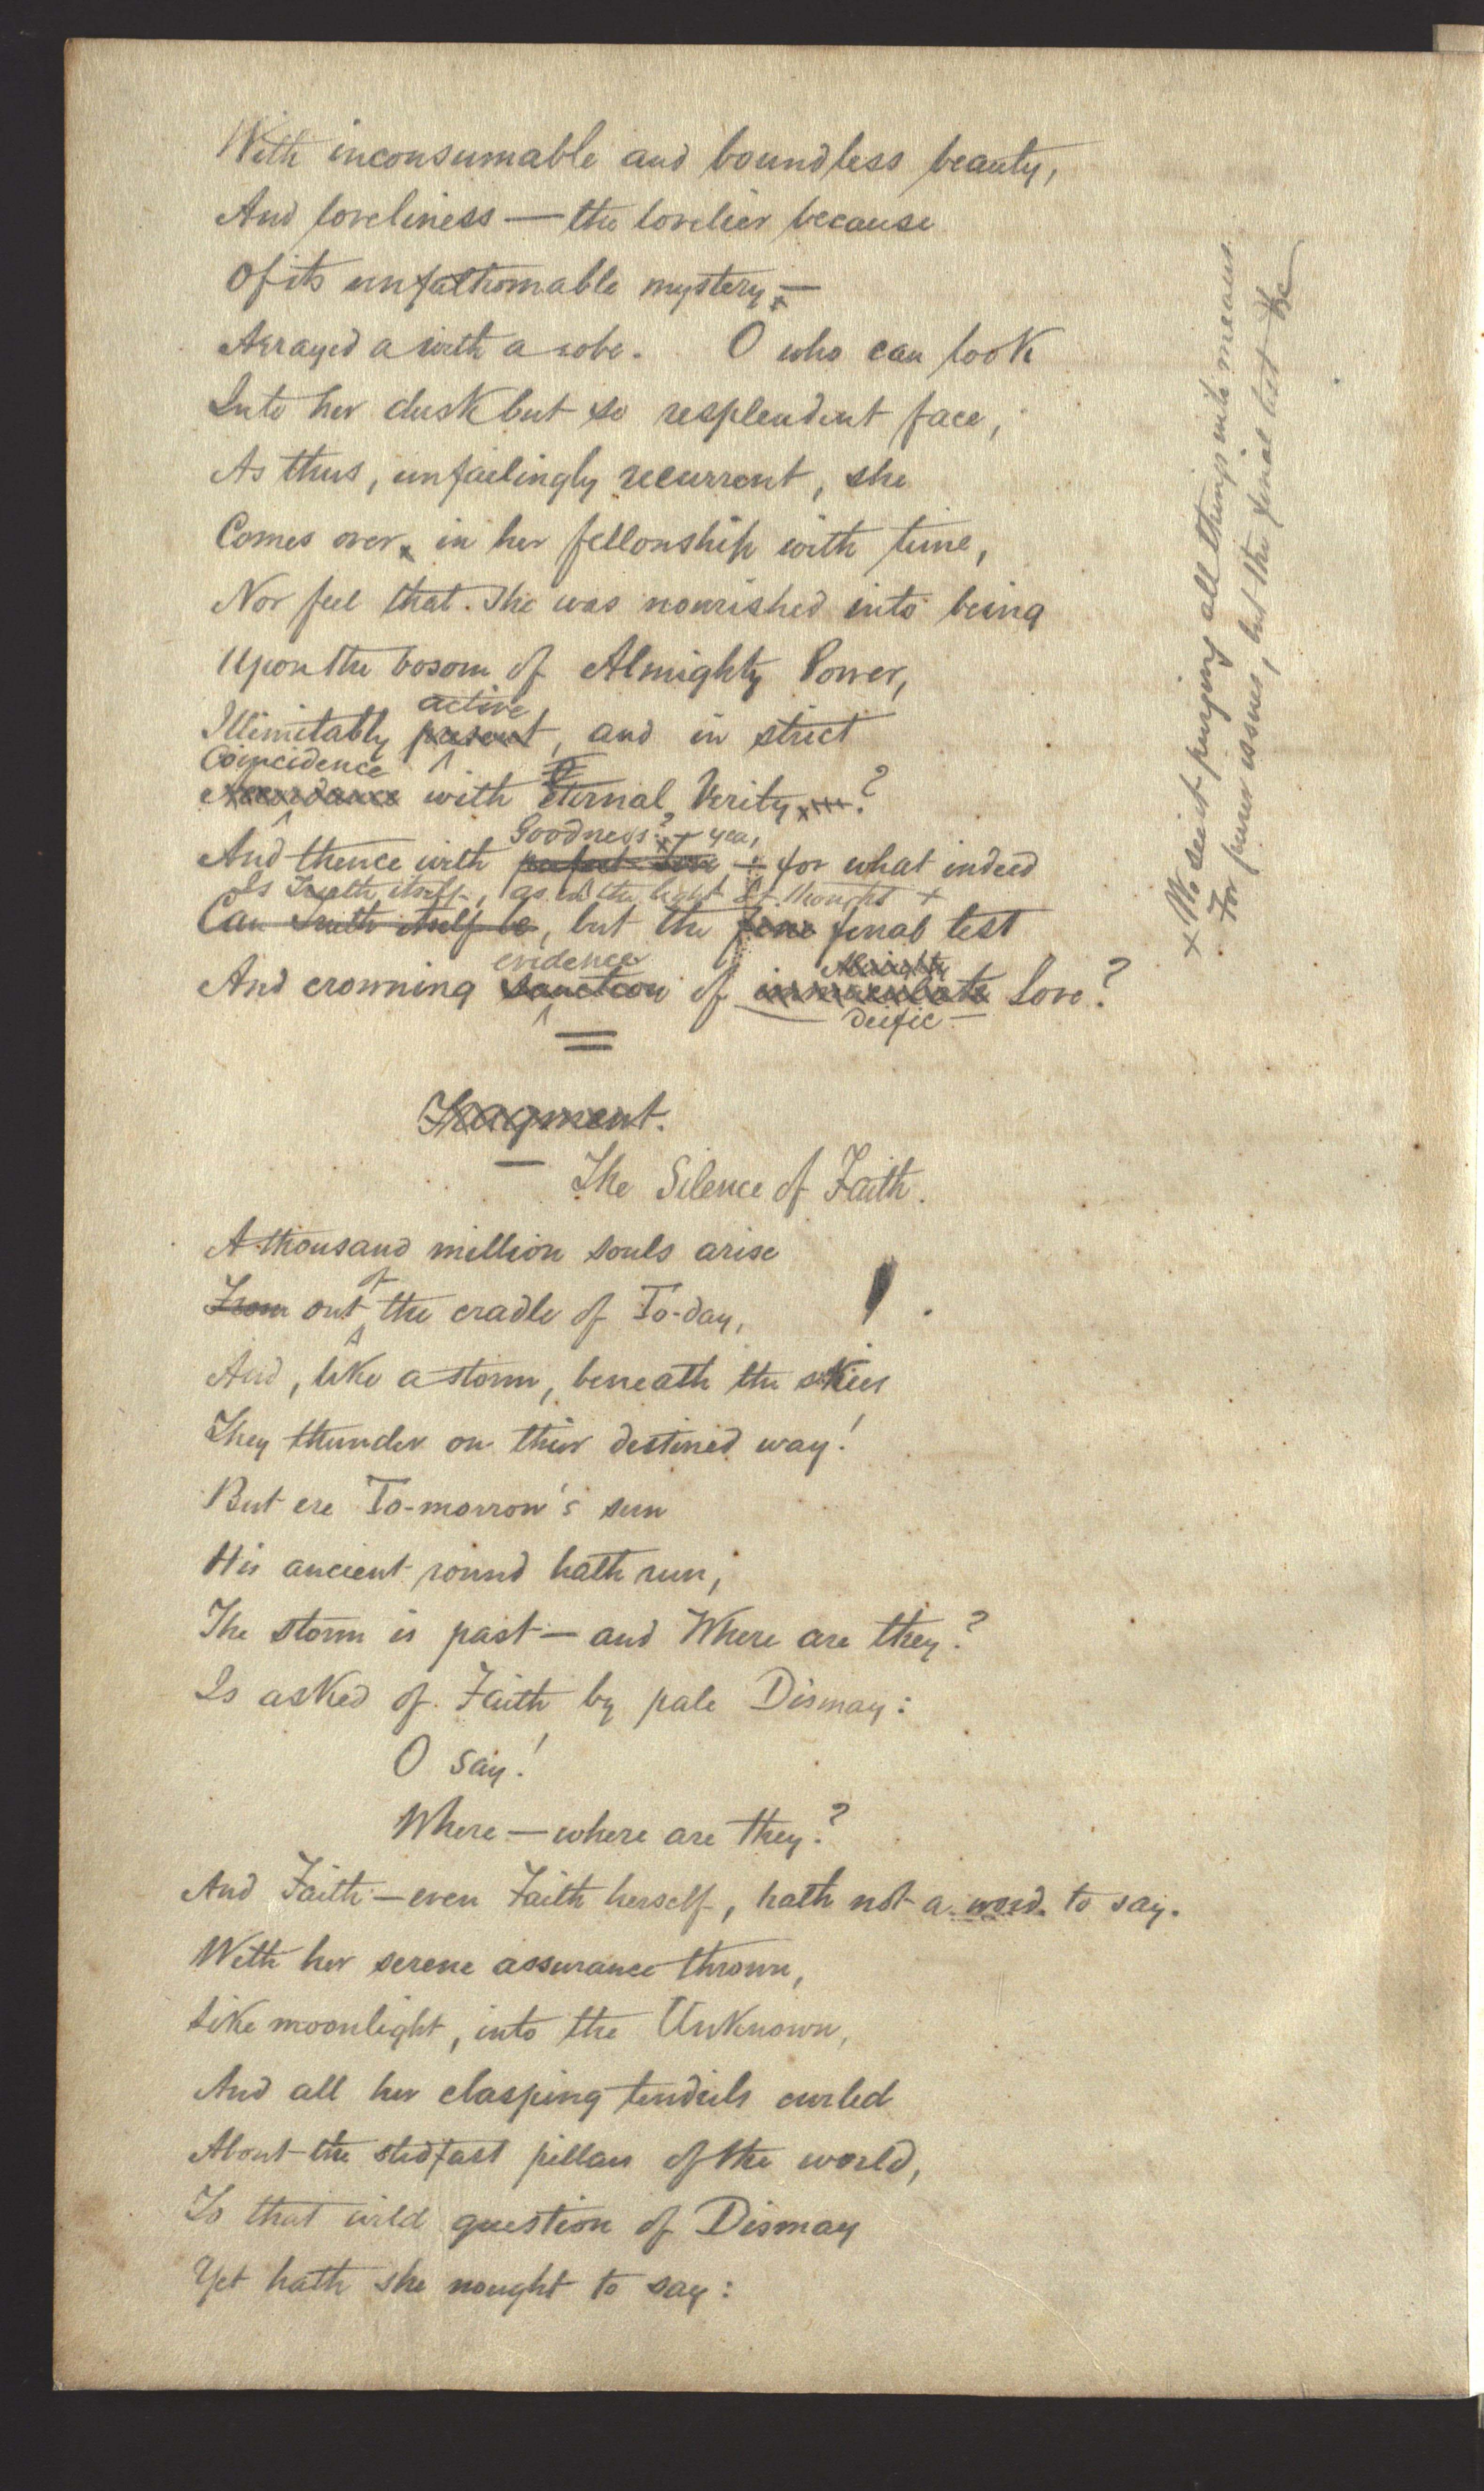 With inconsumable and boundless beauty,
And loveliness — the lovelier because
Of its unfathomable mystery, —
Arrayed a with a robe. O who can look
Into her dusk but so resplendent face,
As thus, unfailingly recurrent, she
Comes over, in her fellowship with time,
Nor feel that she was nourished into being
Upon the bosom of Almighty Power,
active
Illimitably present, and in strict
Coincidence
Accordance with Eternal Verity?
Goodness? + yea,
And thence with perfect Love, — for what indeed
Is Truth itself, as in the light of thought +
Can Truth itself be, but the fine final test
evidence Almighty
And crowning sanction of immaculate Love?
deific
Fragment.
The Silence of Faith.
A thousand million souls arise
of
From out the cradle of To-day,
And, like a storm, beneath the skies
They thunder on their destined way!
But ere To-morrow's sun
His ancient round hath run,
The storm is past — and Where are they?
Is asked of Faith by pale Dismay:
O say!
Where — where are they?
And Faith — even Faith herself, hath not a word to say.
With her serene assurance thrown,
Like moonlight, into the Unknown,
And all her clasping tendrils curled
About the stedfast pillars of the world,
To that wild question of Dismay
Yet hath she nought to say:
x We seest purging all things into means
For purer issues, but the final test &c